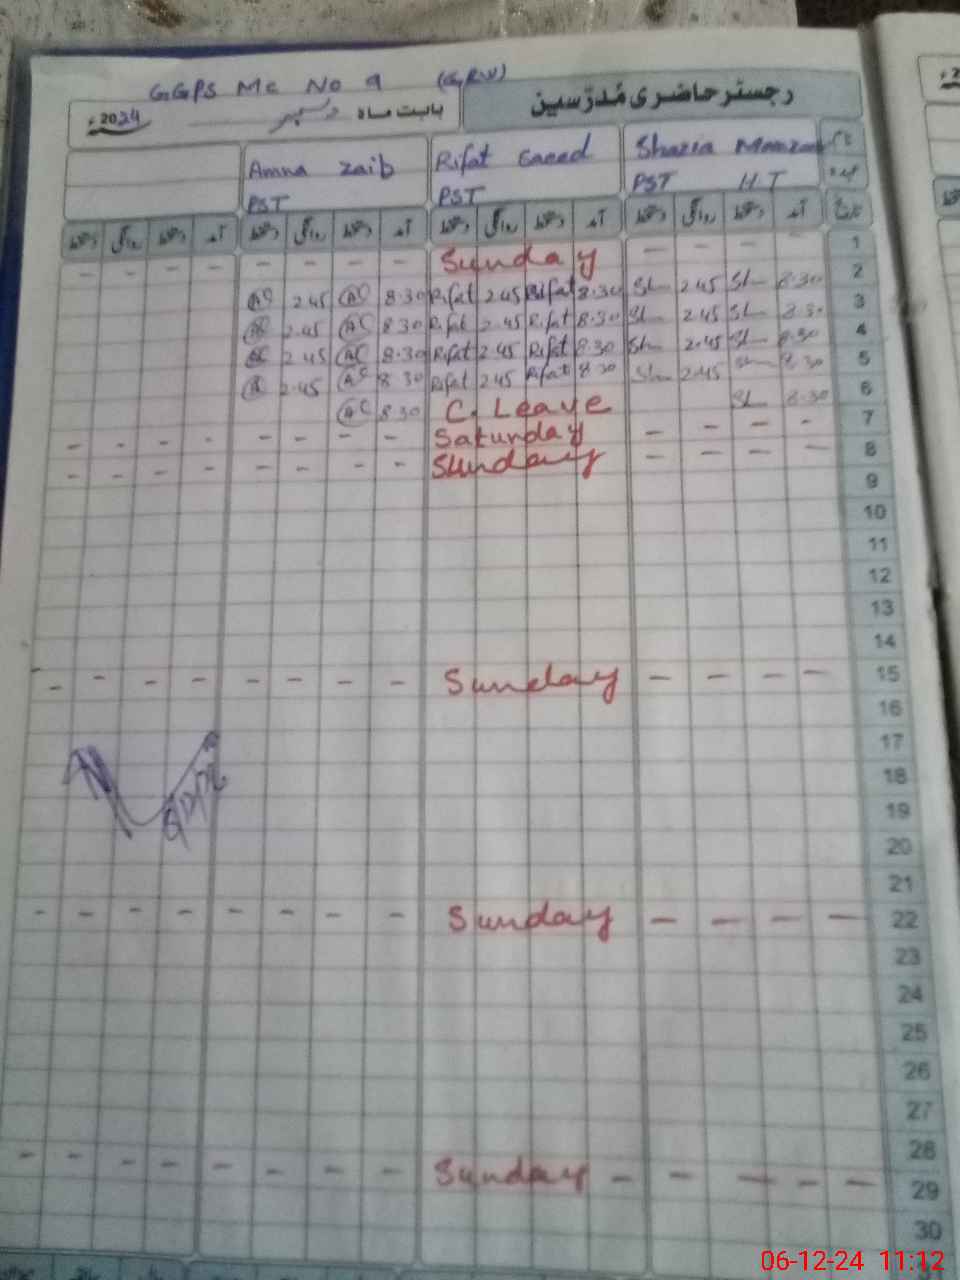 GGPS Mc No 9 (G,R,W)
رجسٹر حاضری مُدرّسین
بابت ماہ دسمبر 2024ء
نام Shazia Rifat Saeed Amna Zaib
عہدہ PST H.T PST PST
تاریخ آمد دستخط روانگی دستخط آمد دستخط روانگی دستخط آمد دستخط روانگی دستخط آمد دستخط روانگی دستخط
- - - - - - - - Sunday - - - - 1
2.45 8.30 Rifat 2.45 Rifat 8.30 Sh 2.45 Sh 8.30 2
2.45 8.30 Rifat 2.45 Rifat 8.30 Sh 2.45 Sh 8.30 3
2.45 8.30 Rifat 2.45 Rifat 8.30 Sh 2.45 Sh 8.30 4
2.45 8.30 Rifat 2.45 Rifat 8.30 Sh 2.45 Sh 8.30 5
8.30 C. Leave Sh 8.30 6
- - - - - - - - Saturday - - - - 7
- - - - - - - - Sunday - - - - 8
9
10
11
12
13
14
- - - - - - - - Sunday - - - - 15
16
17
18
19
20
21
- - - - - - - - Sunday - - - - 22
23
24
25
26
27
28
- - - - - - - - Sunday - - - - - 29
30
06-12-24 11:12